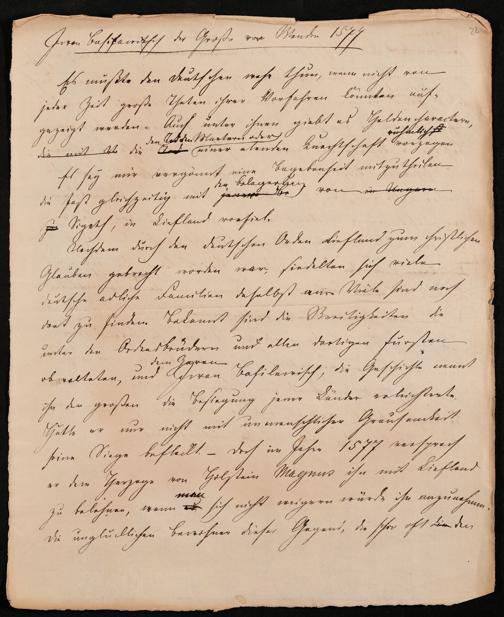 Iwan Basilowitsch der Große vor Wenden 1577
Es müßte den Deutschen wehe thun, wenn nicht von
jeder Zeit große Thaten ihrer Vorfahren könnten auf-
gezeigt werden. Auch unter ihnen giebt es Heldencharactere,
rühmlichst
die mit die den Martern oder einer elenden Knechtschaft vorzogen
Es sey mir vergönnt eine Begebenheit mitzutheilen
die fast gleichzeitig mit der Belagerung von in Ungarn
Sigeth, in Liefland vorfiel.
Nachdem durch den deutschen Orden Liefland zum christlichen
Glauben gebracht worden war, siedelten sich viele
deutsche adliche Familien daselbst an. Viele sind noch
dort zu finden. Bekannt sind die Streitigkeiten die
unter den Ordensbrüdern und allen dortigen Fürsten
dem Zaren
obwalteten, und Basilowitsch, die Geschichte nennt
ihn den großen die Besiegung jener Länder erleichterte.
Hätte er nur nicht mit unmenschlicher Grausamkeit
seine Siege befleckt. – Doch im Jahre 1577 versprach
er dem Herzoge von Holstein Magnus ihn mit Liefland
man
zu belehnen, wenn es sich nicht weigern würde ihn anzunehmen.
Die unglücklichen Bewohner dieser Gegend, die schon oft den